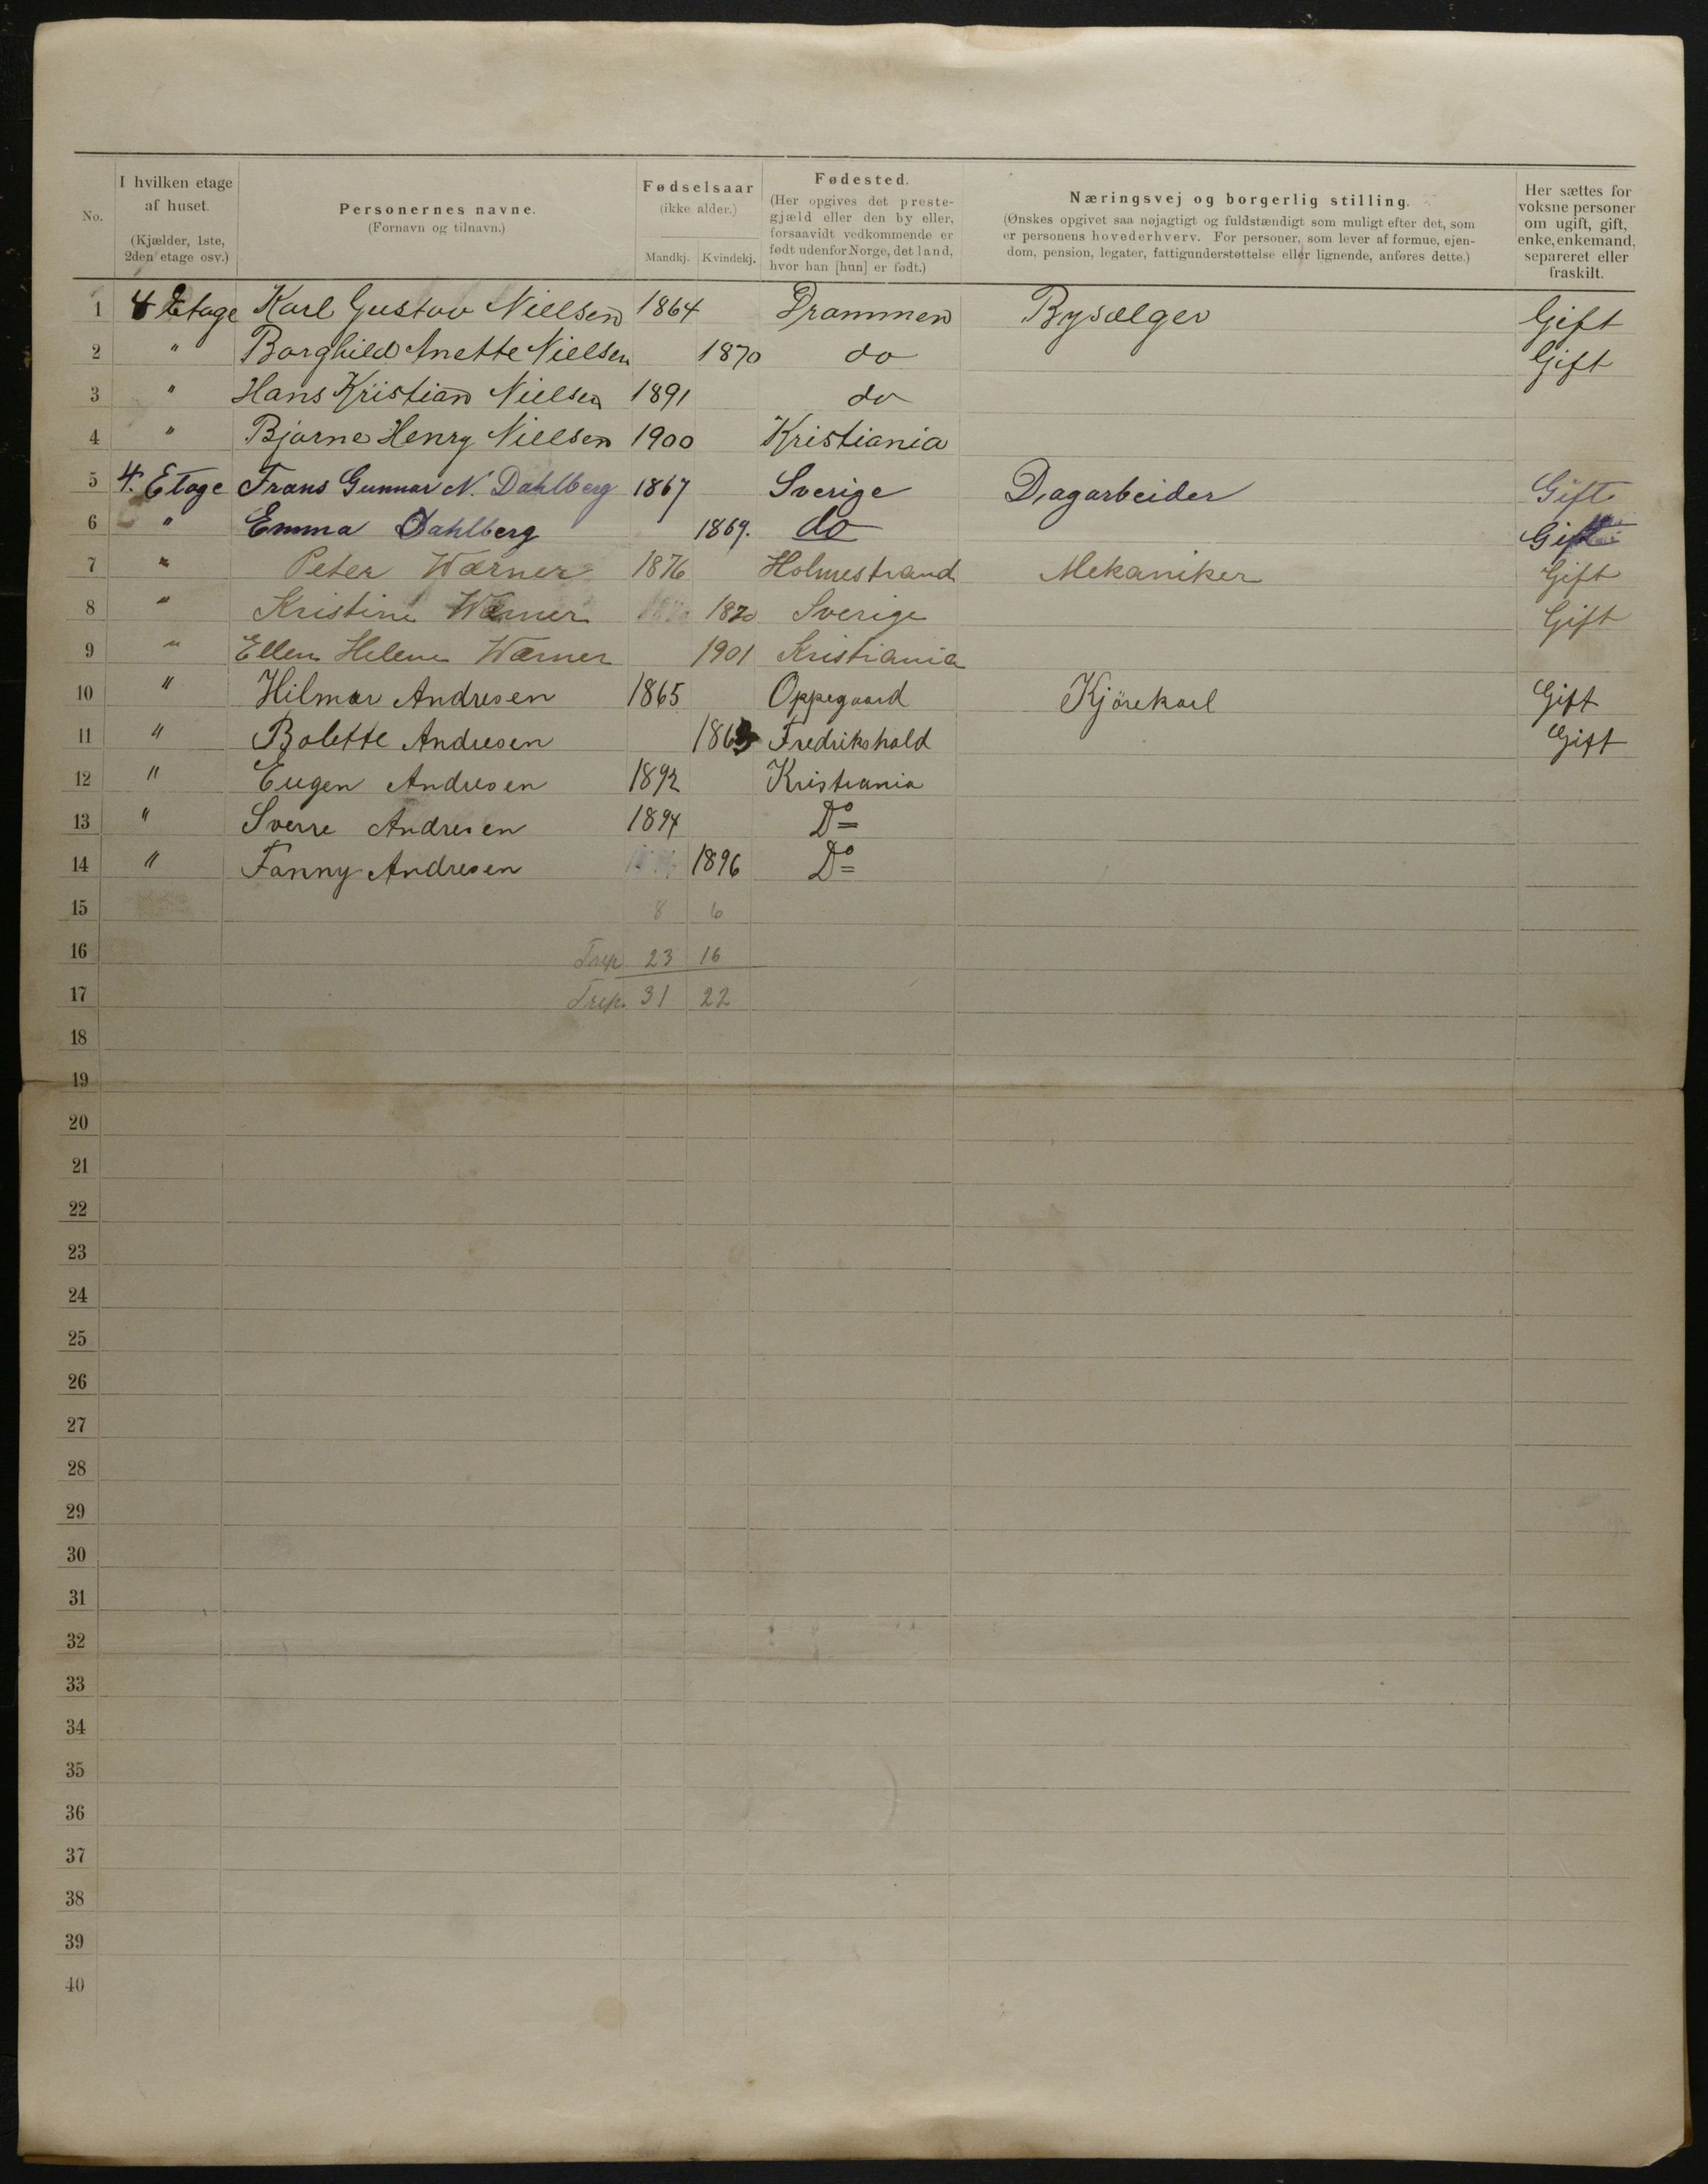 No.
I hvilken etage af huset.
(Kjælder, 1ste, 2den etage osv.)
Personernes navne.
(Fornavn og tilnavn.)
Fødselsaar
(ikke alder.)
Mandkj. Kvindekj.
Fødested.
(Her opgives det preste-
gjæld eller den by eller,
forsaavidt vedkommende er
født udenfor Norge, det land,
hvor han [hun] er født.)
Næringsvej og borgerlig stilling.
(Ønskes opgivet saa nøjagtigt og fuldstændigt som muligt efter det, som
er personens hovederhverv. For personer, som lever af formue, ejen-
dom, pension, legater, fattigunderstøttelse eller lignende, anføres dette.)
Her sættes for
voksne personer
om ugift, gift,
enke, enkemand,
separeret eller
fraskilt.
1 4 Etage Karl Gustav Nielsen 1864 Drammen Bysælger Gift
2 " Borghild Anette Nielsen 1870 do Gift
3 " Hans Kristian Nielsen 1891 do
4 " Bjarne Henry Nielsen 1900 Kristiania
5 4. Etage Frans Gunnar N. Dahlberg 1867 Sverige Dagarbeider Gift
6 " Emma Dahlberg 1869. do Gift
7 " Peter Wærner 1876 Holmestrand Mekaniker Gift
8 " Kristine Wærner 1870 Sverige Gift
9 " Ellen Helene Wærner 1901 Kristiania
10 " Hilmar Andresen 1865 Oppegaard Kjörekarl Gift
11 " Bolette Andresen 1863 Fredrikshald Gift
12 " Eugen Andresen 1892 Kristiania
13 " Sverre Andresen 1894 Do
14 " Fanny Andresen 1896 Do
15 8 6
16 23 16
17 31 22
18
19
20
21
22
23
24
25
26
27
28
29
30
31
32
33
34
35
36
37
38
39
40